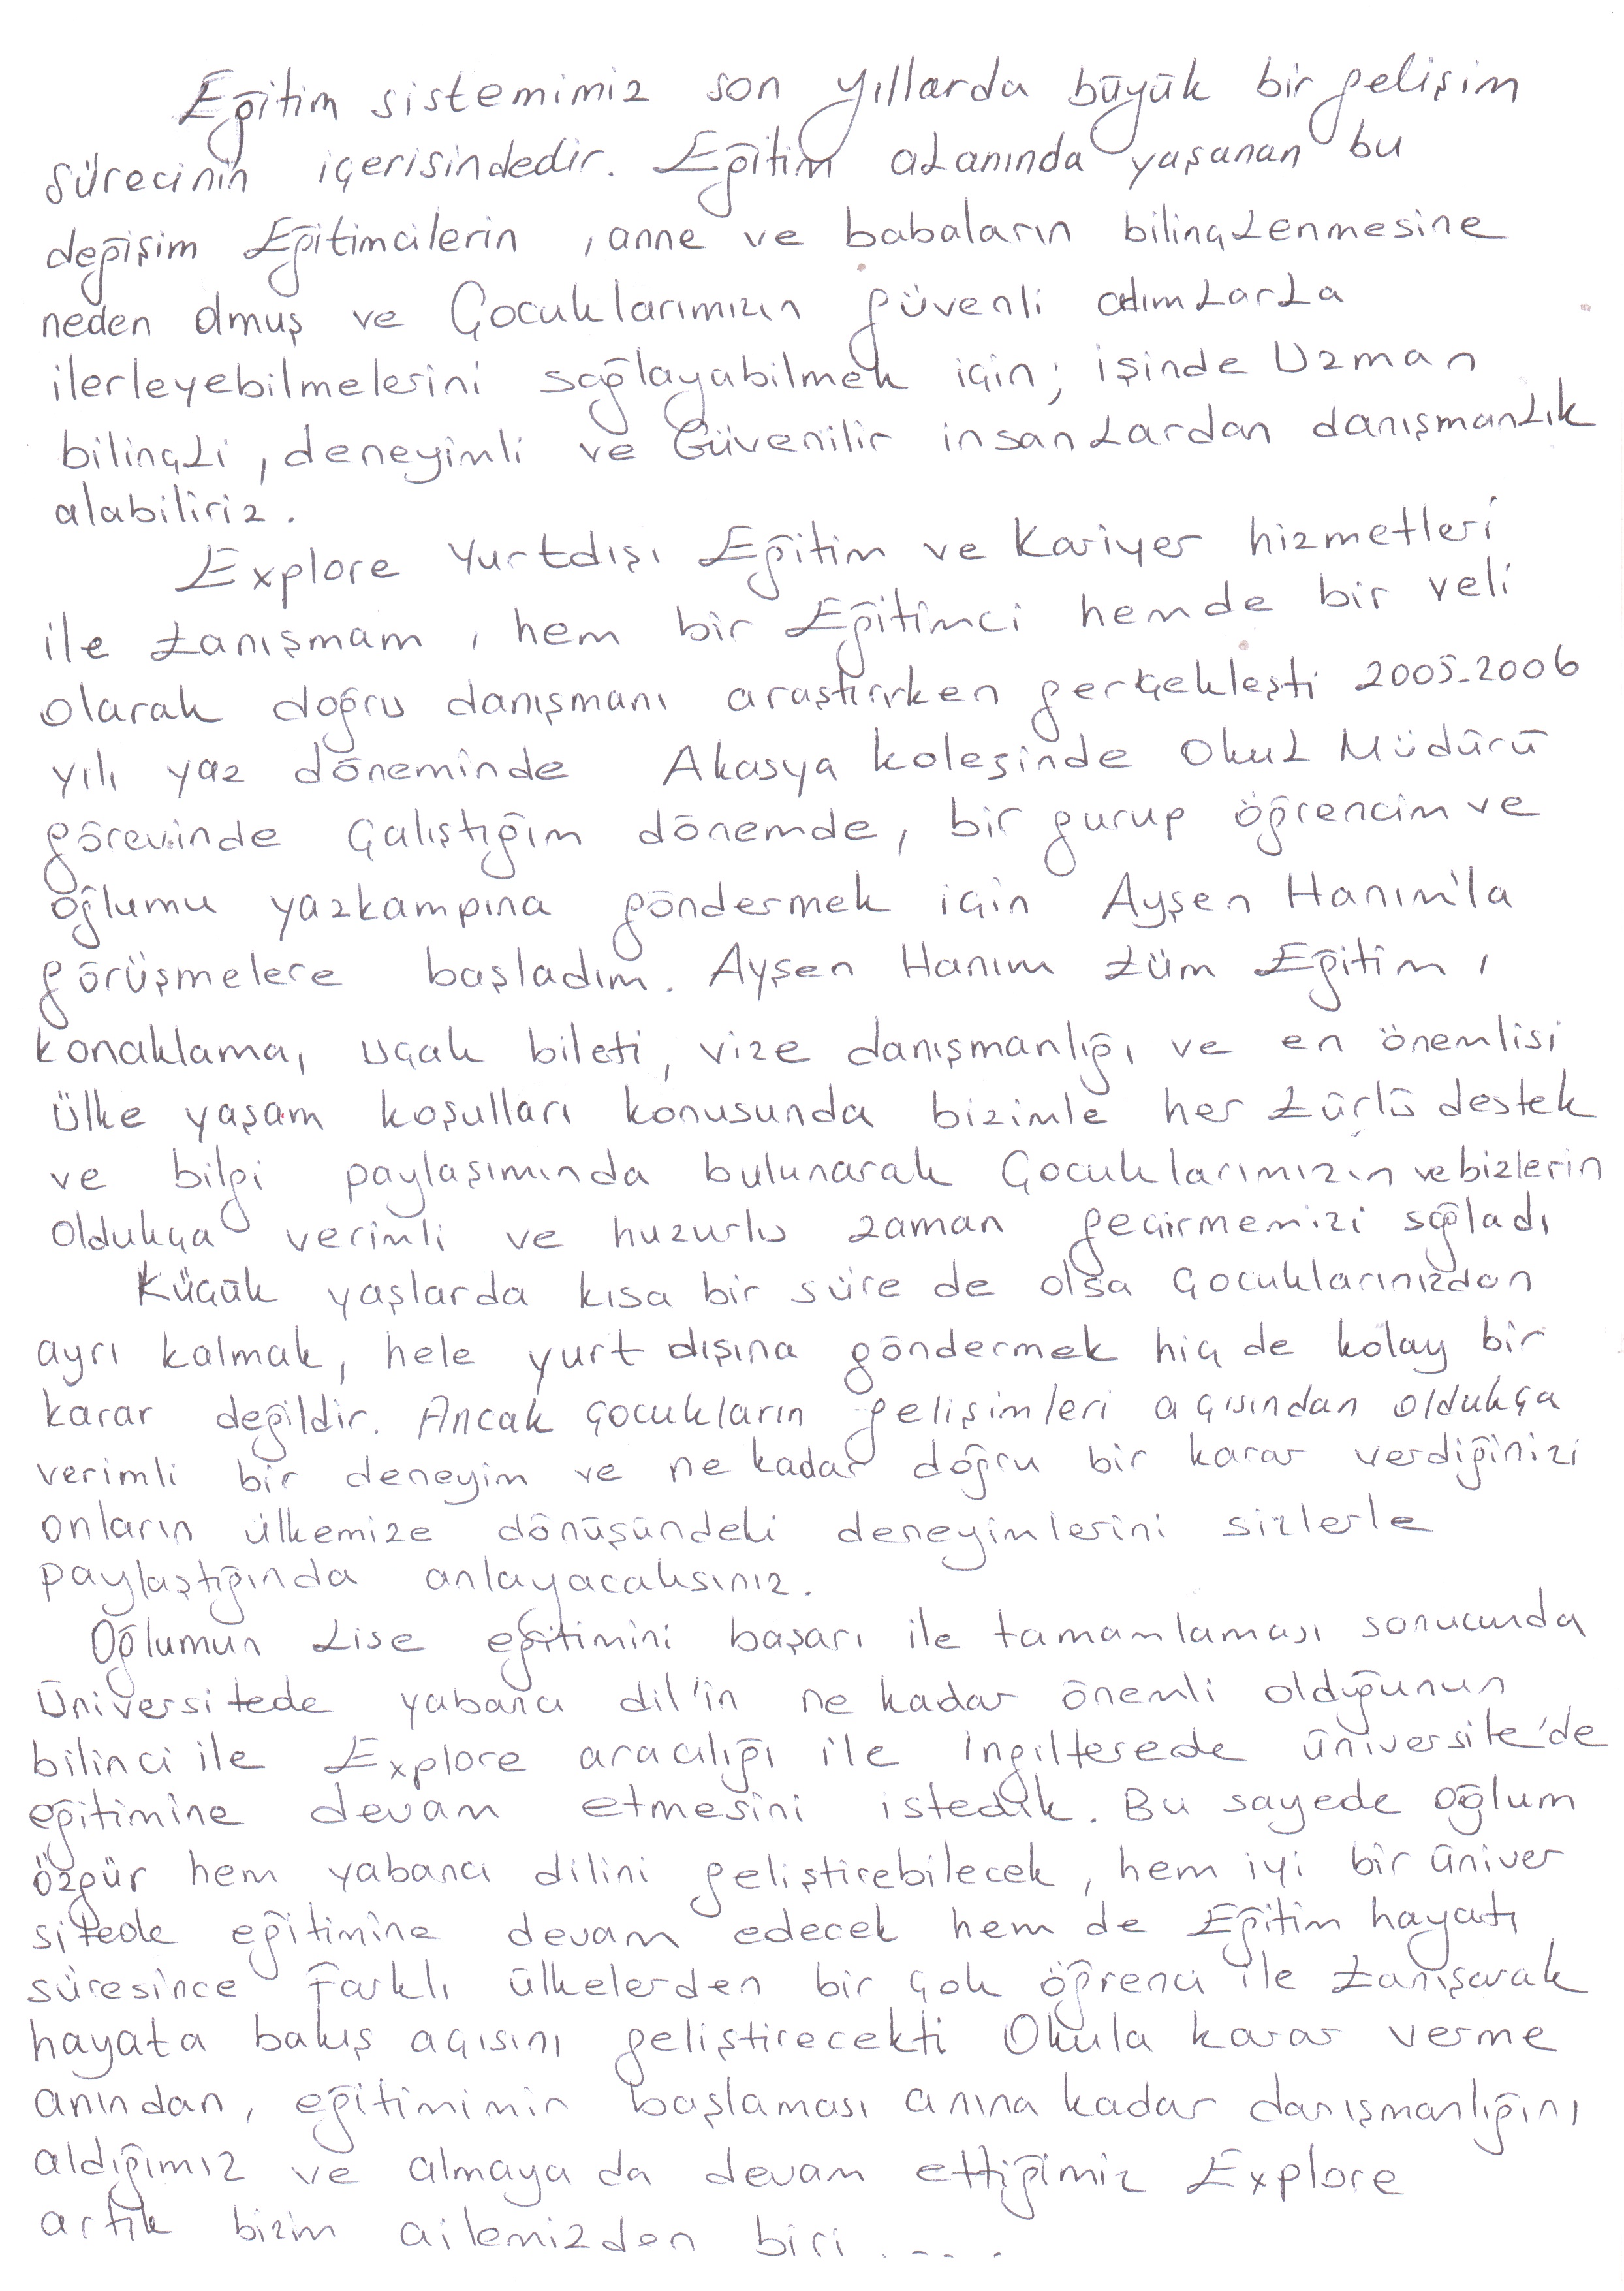 Eğitim sistemimiz son yıllarda büyük bir gelişim
sürecinin içerisindedir. Eğitim alanında yaşanan bu
değişim Eğitimcilerin , anne ve babaların bilinçlenmesine
neden olmuş ve Çocuklarımızın güvenli adımlarla
ilerleyebilmelerini sağlayabilmek için; işinde Uzman
bilinçli, deneyimli ve Güvenilir insanlardan danışmanlık
alabiliriz.
Explore Yurtdışı Eğitim ve Kariyer hizmetleri
ile tanışmam, hem bir Eğitimci hemde bir veli
olarak doğru danışmanı araştırırken gerçekleşti 2005-2006
yılı yaz döneminde Akasya kolejinde Okul Müdürü
görevinde Çalıştığım dönemde, bir gurup öğrencim ve
oğlumu yazkampına göndermek için Ayşen Hanım'la
görüşmelere başladım. Ayşen Hanım tüm Eğitim,
konaklama, uçak bileti, vize danışmanlığı ve en önemlisi
ülke yaşam koşulları konusunda bizimle her türlü destek
ve bilgi paylaşımında bulunarak Çocuklarımızın ve bizlerin
oldukça verimli ve huzurlu zaman geçirmemizi sağladı
Küçük yaşlarda kısa bir süre de olsa çocuklarınızdan
ayrı kalmak, hele yurt dışına göndermek hiç de kolay bir
karar değildir. Ancak çocukların gelişimleri açısından oldukça
verimli bir deneyim ve ne kadar doğru bir karar verdiğinizi
onların ülkemize dönüşündeki deneyimlerini sizlerle
paylaştığında anlayacaksınız.
Oğlumun Lise eğitimini başarı ile tamamlaması sonucunda
Üniversitede yabancı dil'in ne kadar önemli olduğunun
bilinci ile Explore aracılığı ile İngilterede üniversite'de
eğitimine devam etmesini istedik. Bu sayede oğlum
özgür hem yabancı dilini geliştirebilecek, hem iyi bir üniver
sitede eğitimine devam edecek hem de Eğitim hayatı
süresince farklı ülkelerden bir çok öğrenci ile tanışarak
hayata bakış açısını geliştirecekti Okula karar verme
anından, eğitiminin başlaması anına kadar danışmanlığını
aldığımız ve almaya da devam ettiğimiz Explore
artık bizim ailemizden biri . - - .